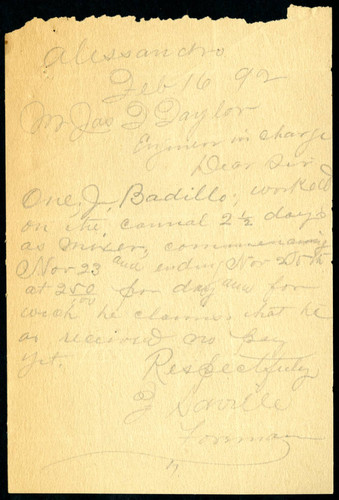 Alessandro
Feb 16 92
Mr Jas T Taylor
Engineer in charge
Dear Sir
One J, Badillo, worked
on the cannal 2 1/2 days
as mixer, commencing
Nov 23 and ending Nov 25th
at 2 50/100 per day and for
wich he claimes that he
as received no pay
yet.
Respectfuly
Saville
Forman